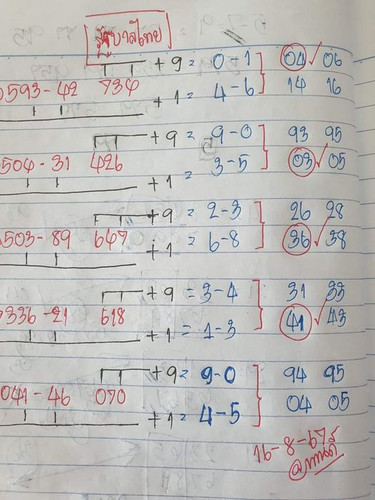 รัฐบาลไทย
+ 9 = 0 - 1 04 ✓ 06
0593 - 42 734
+ 1 = 4 - 6 14 16
+ 9 = 9 - 0 93 95
504 - 31 426
+ 1 = 3 - 5 03 ✓ 05
+ 9 = 2 - 3 26 28
503 - 89 647
+ 1 = 6 - 8 36 ✓ 38
+ 9 = 3 - 4 31 33
336 - 21 618
+ 1 = 1 - 3 41 ✓ 43
+ 9 = 9 - 0 94 95
041 - 46 070
+ 1 = 4 - 5 04 05
16 - 8 - 67